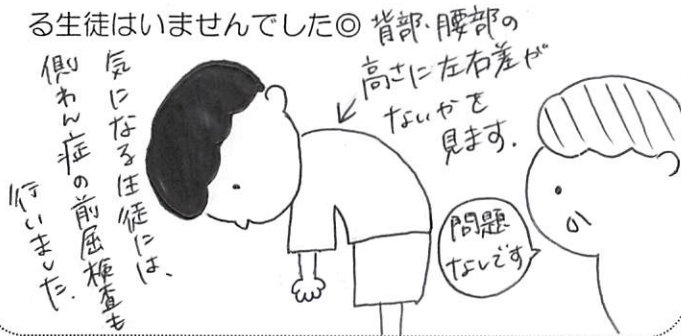 る生徒はいませんでした◎
背部・腰部の
高さに左右差が
ないかを
見ます.
気になる生徒には、
側わん症の前屈検査も
行いました.
問題
なしです